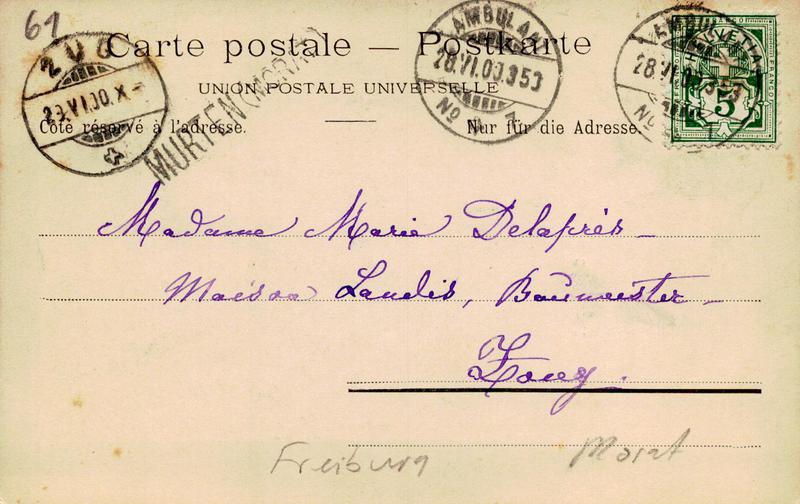 61
Carte postale — Postkarte
UNION POSTALE UNIVERSELLE
Côté réservé à l'adresse. Nur für die Adresse.
ZUG
29.VI.00.X
MURTEN (MORAT)
AMBULANT
28.VI.00
No
AMBULANT
28.VI.0
No
HELVETIA
FRANCO
5
Madame Marie Delaprès
Maison Landis, Baumeister
Zoug.
Freiburg Morat